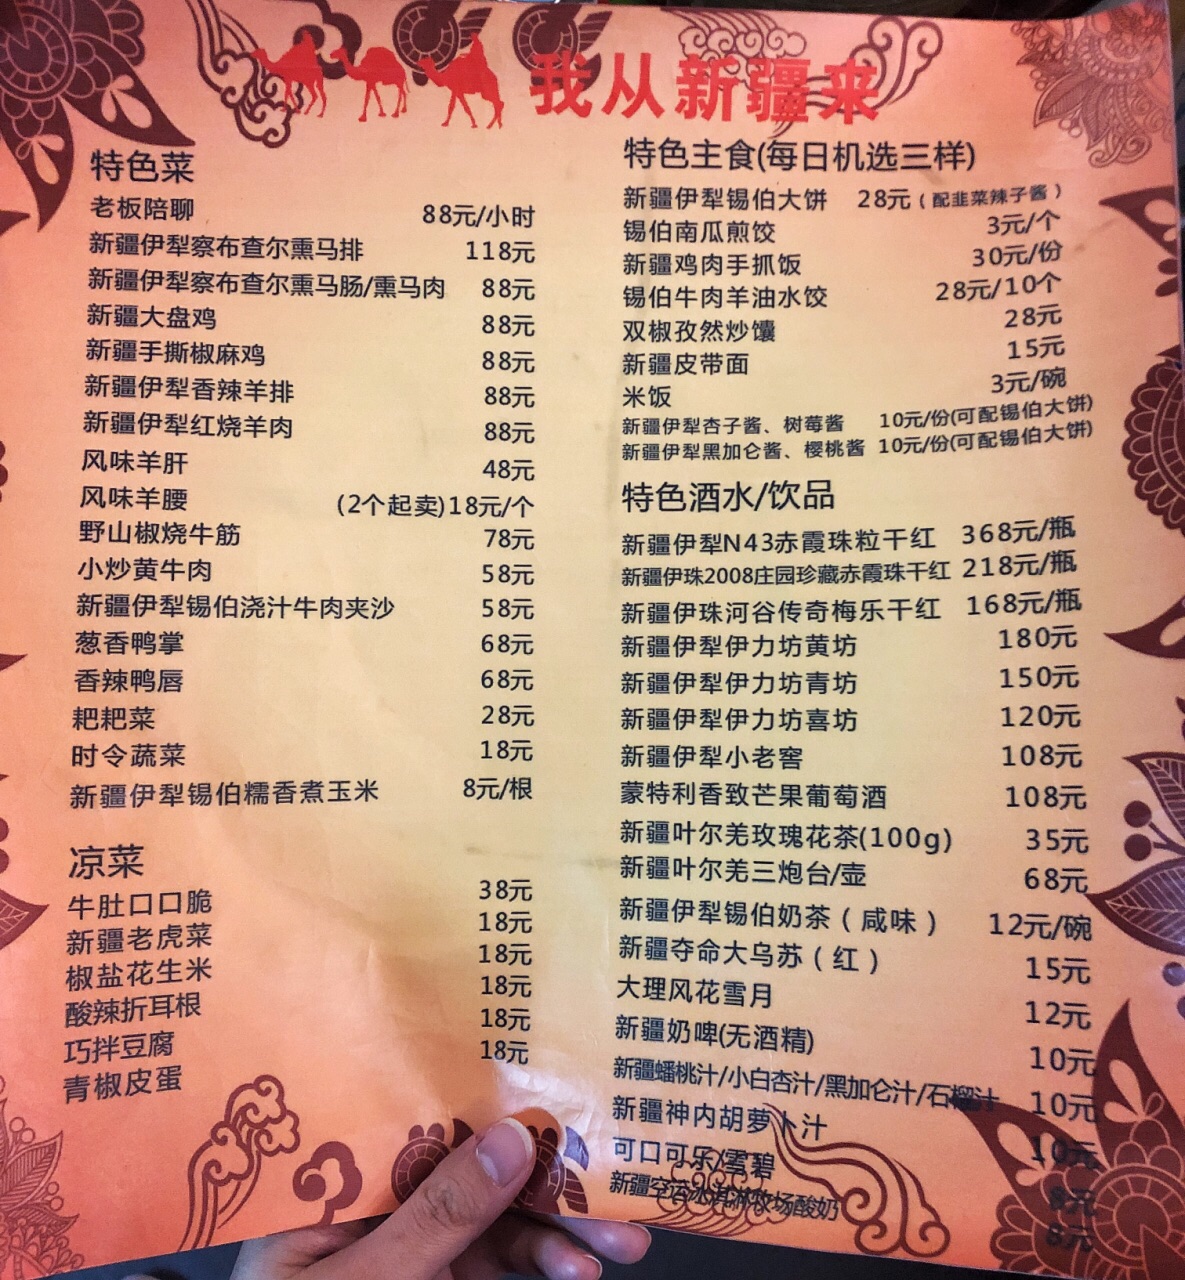 我从新疆来
特色菜
老板陪聊 88元/小时
新疆伊犁察布查尔熏马排 118元
新疆伊犁察布查尔熏马肠/熏马肉 88元
新疆大盘鸡 88元
新疆手撕椒麻鸡 88元
新疆伊犁香辣羊排 88元
新疆伊犁红烧羊肉 88元
风味羊肝 48元
风味羊腰 (2个起卖)18元/个
野山椒烧牛筋 78元
小炒黄牛肉 58元
新疆伊犁锡伯浇汁牛肉夹沙 58元
葱香鸭掌 68元
香辣鸭唇 68元
耙耙菜 28元
时令蔬菜 18元
新疆伊犁锡伯糯香煮玉米 8元/根
凉菜
牛肚口口脆 38元
新疆老虎菜 18元
椒盐花生米 18元
酸辣折耳根 18元
巧拌豆腐 18元
青椒皮蛋 18元
特色主食(每日机选三样)
新疆伊犁锡伯大饼 28元（配韭菜辣子酱）
锡伯南瓜煎饺 3元/个
新疆鸡肉手抓饭 30元/份
锡伯牛肉羊油水饺 28元/10个
双椒孜然炒馕 28元
新疆皮带面 15元
米饭 3元/碗
新疆伊犁杏子酱、树莓酱 10元/份(可配锡伯大饼)
新疆伊犁黑加仑酱、樱桃酱 10元/份(可配锡伯大饼)
特色酒水/饮品
新疆伊犁N43赤霞珠粒干红 368元/瓶
新疆伊珠2008庄园珍藏赤霞珠干红 218元/瓶
新疆伊珠河谷传奇梅乐干红 168元/瓶
新疆伊犁伊力坊黄坊 180元
新疆伊犁伊力坊青坊 150元
新疆伊犁伊力坊喜坊 120元
新疆伊犁小老窖 108元
蒙特利香致芒果葡萄酒 108元
新疆叶尔羌玫瑰花茶(100g) 35元
新疆叶尔羌三炮台/壶 68元
新疆伊犁锡伯奶茶（咸味） 12元/碗
新疆夺命大乌苏（红） 15元
大理风花雪月 12元
新疆奶啤(无酒精) 10元
新疆蟠桃汁/小白杏汁/黑加仑汁/石榴汁 10元
新疆神内胡萝卜汁 10元
可口可乐/雪碧 8元
新疆空客冰淇淋牧场酸奶 8元